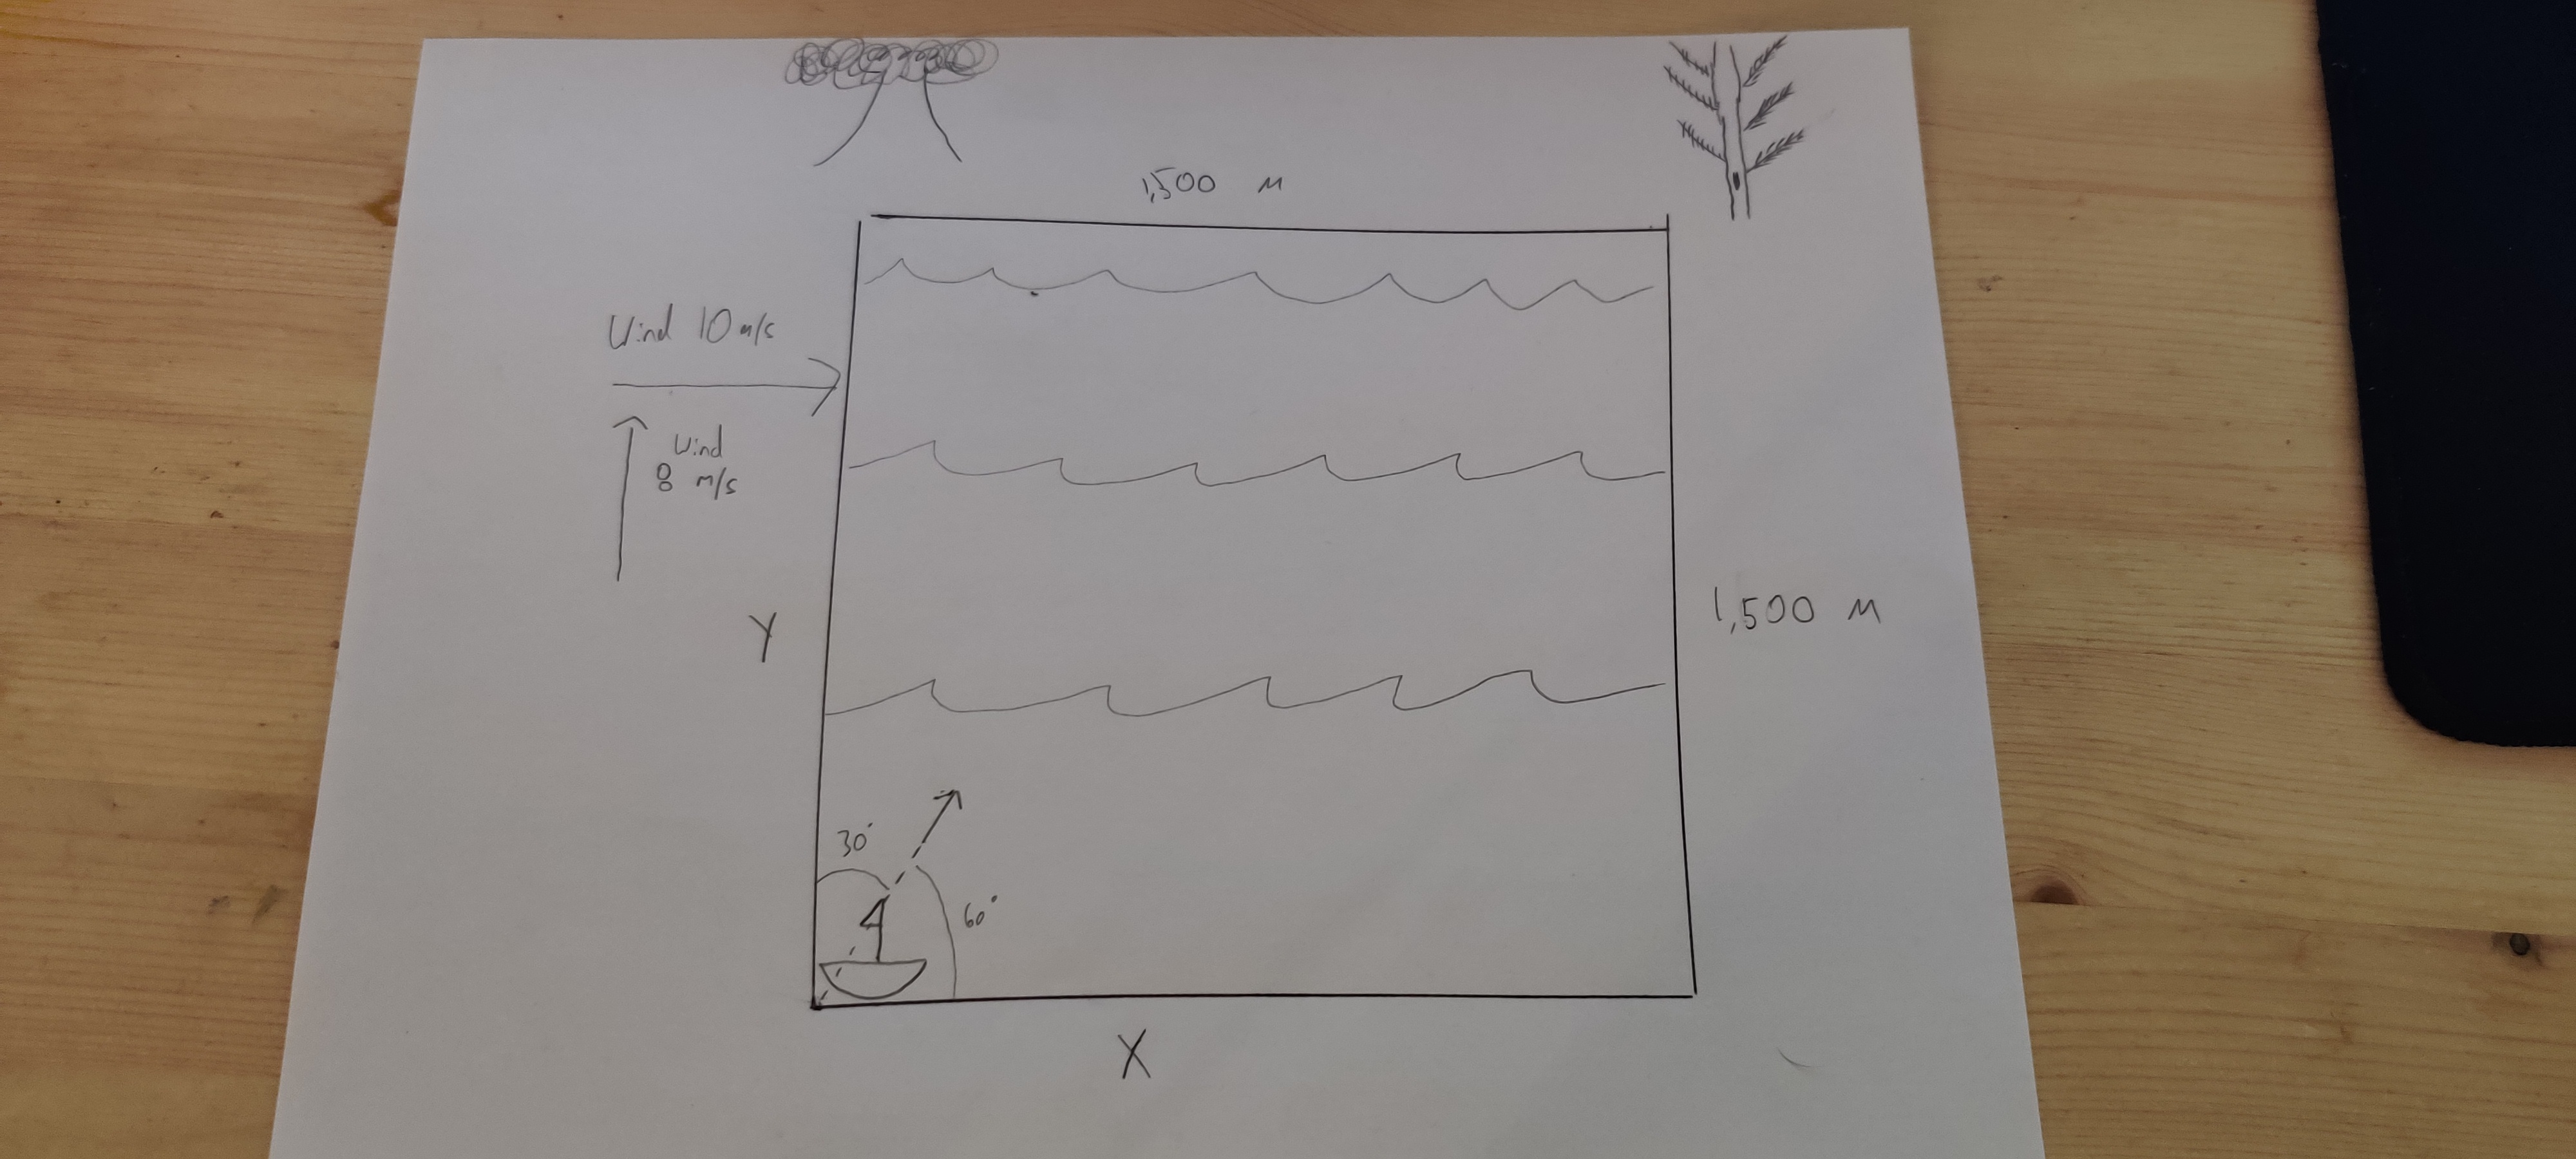 1,500 M
Wind 10 m/s
Wind
8 m/s
Y
1,500 M
30°
60°
X